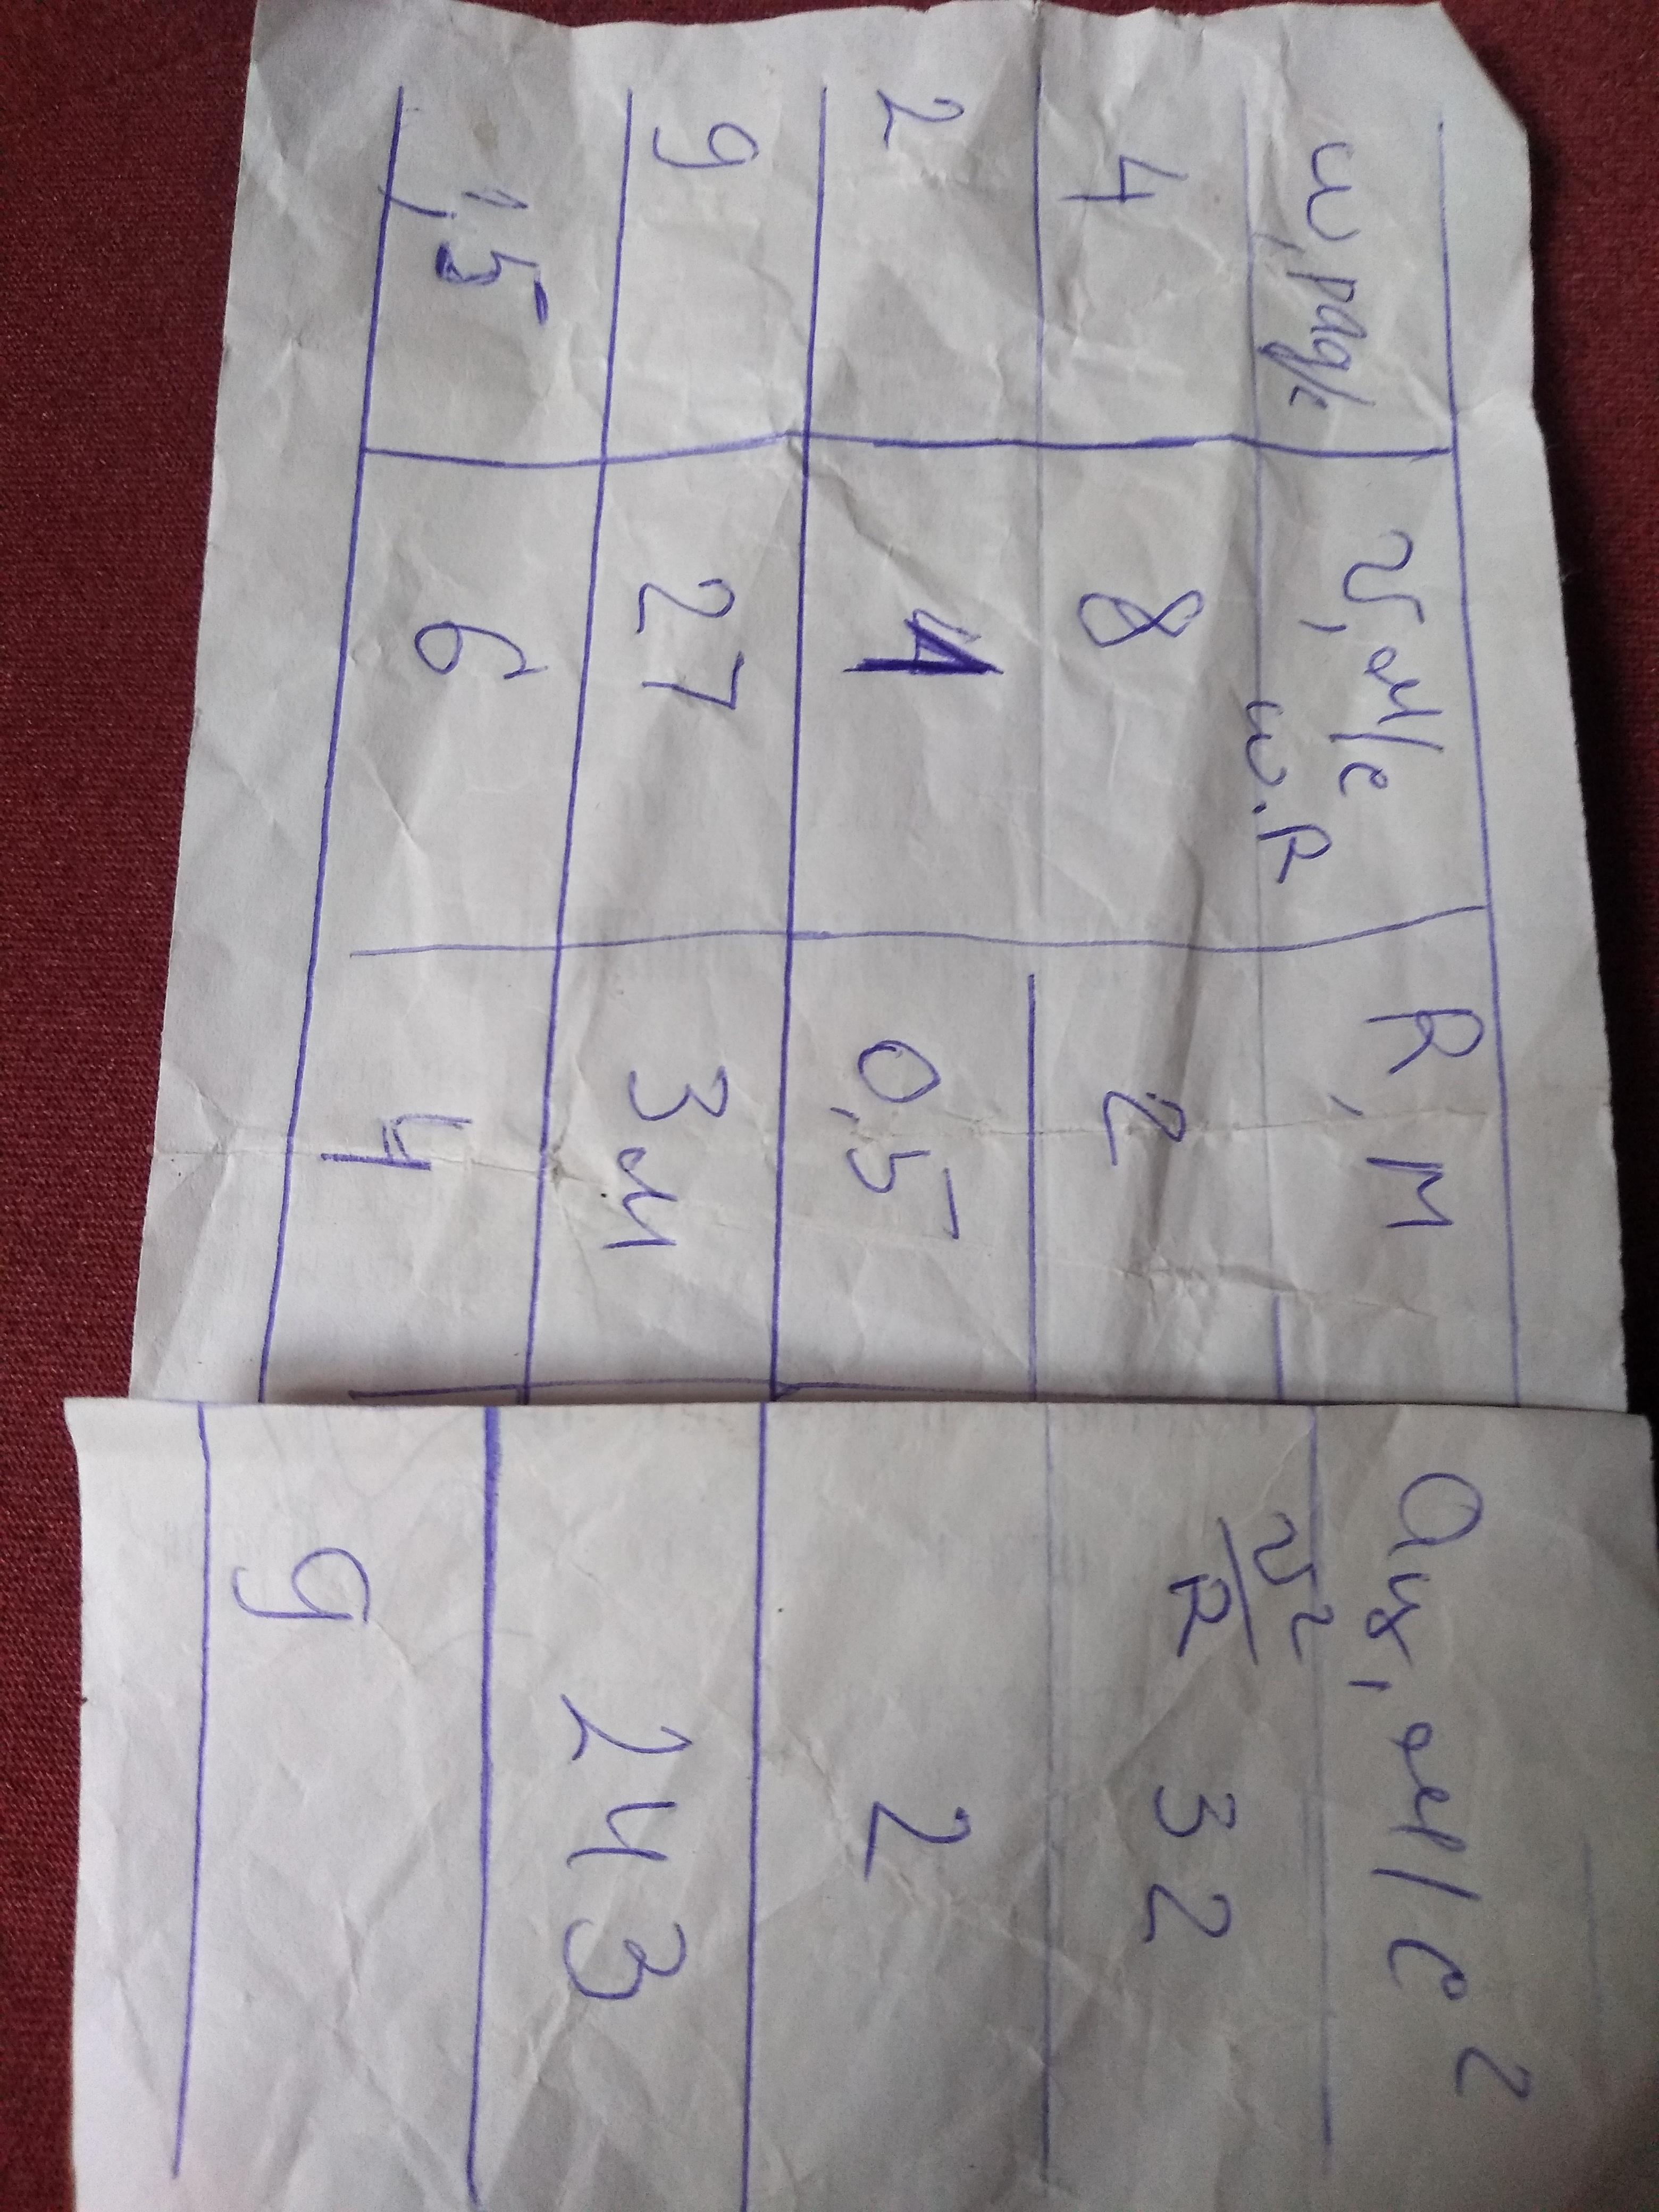 ω, рад/с υ, м/с R, м aц, м/с²
ω·R υ²/R
4 8 2 32
2 1 0,5 2
9 27 3м 243
1,5 6 4 9